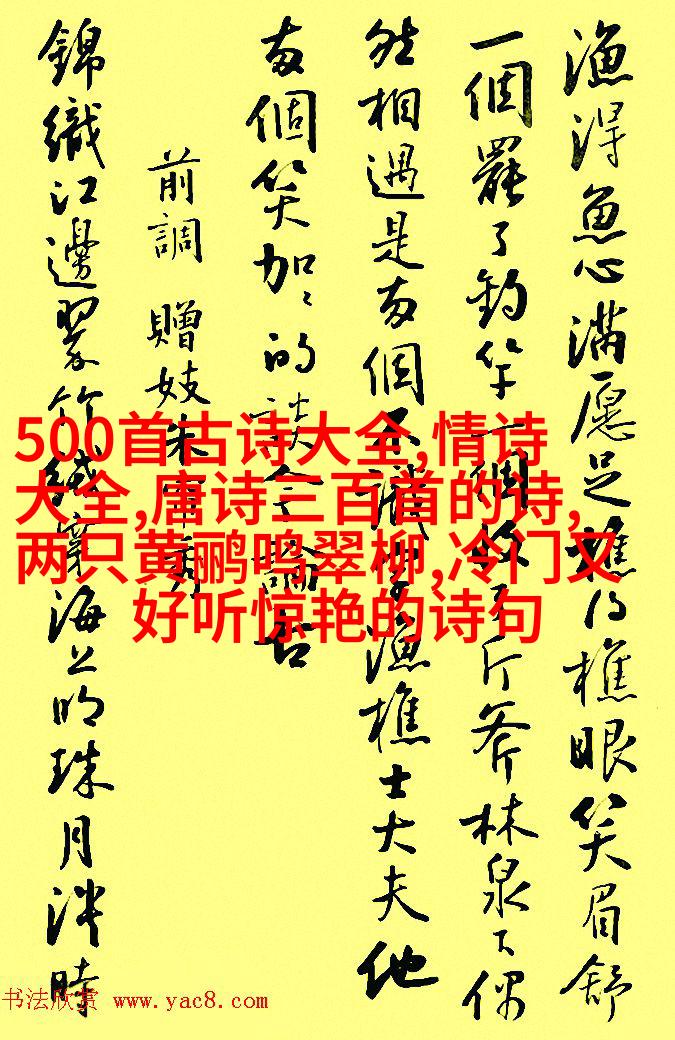 漁得魚心滿愿足樵得樵眼笑眉舒
一個罷了釣竿一個收了斤斧林泉下偶
然相遇是兩個不識字漁樵士大夫他
兩個笑加加的談今論古
前調 贈妓朱簾秀
錦織江邊翠竹絨穿海上明珠月淡時
500首古诗大全,情诗
大全,唐诗三百首的诗,
两只黄鹂鸣翠柳,冷门又
好听惊艳的诗句
书法欣赏 www.yac8.com